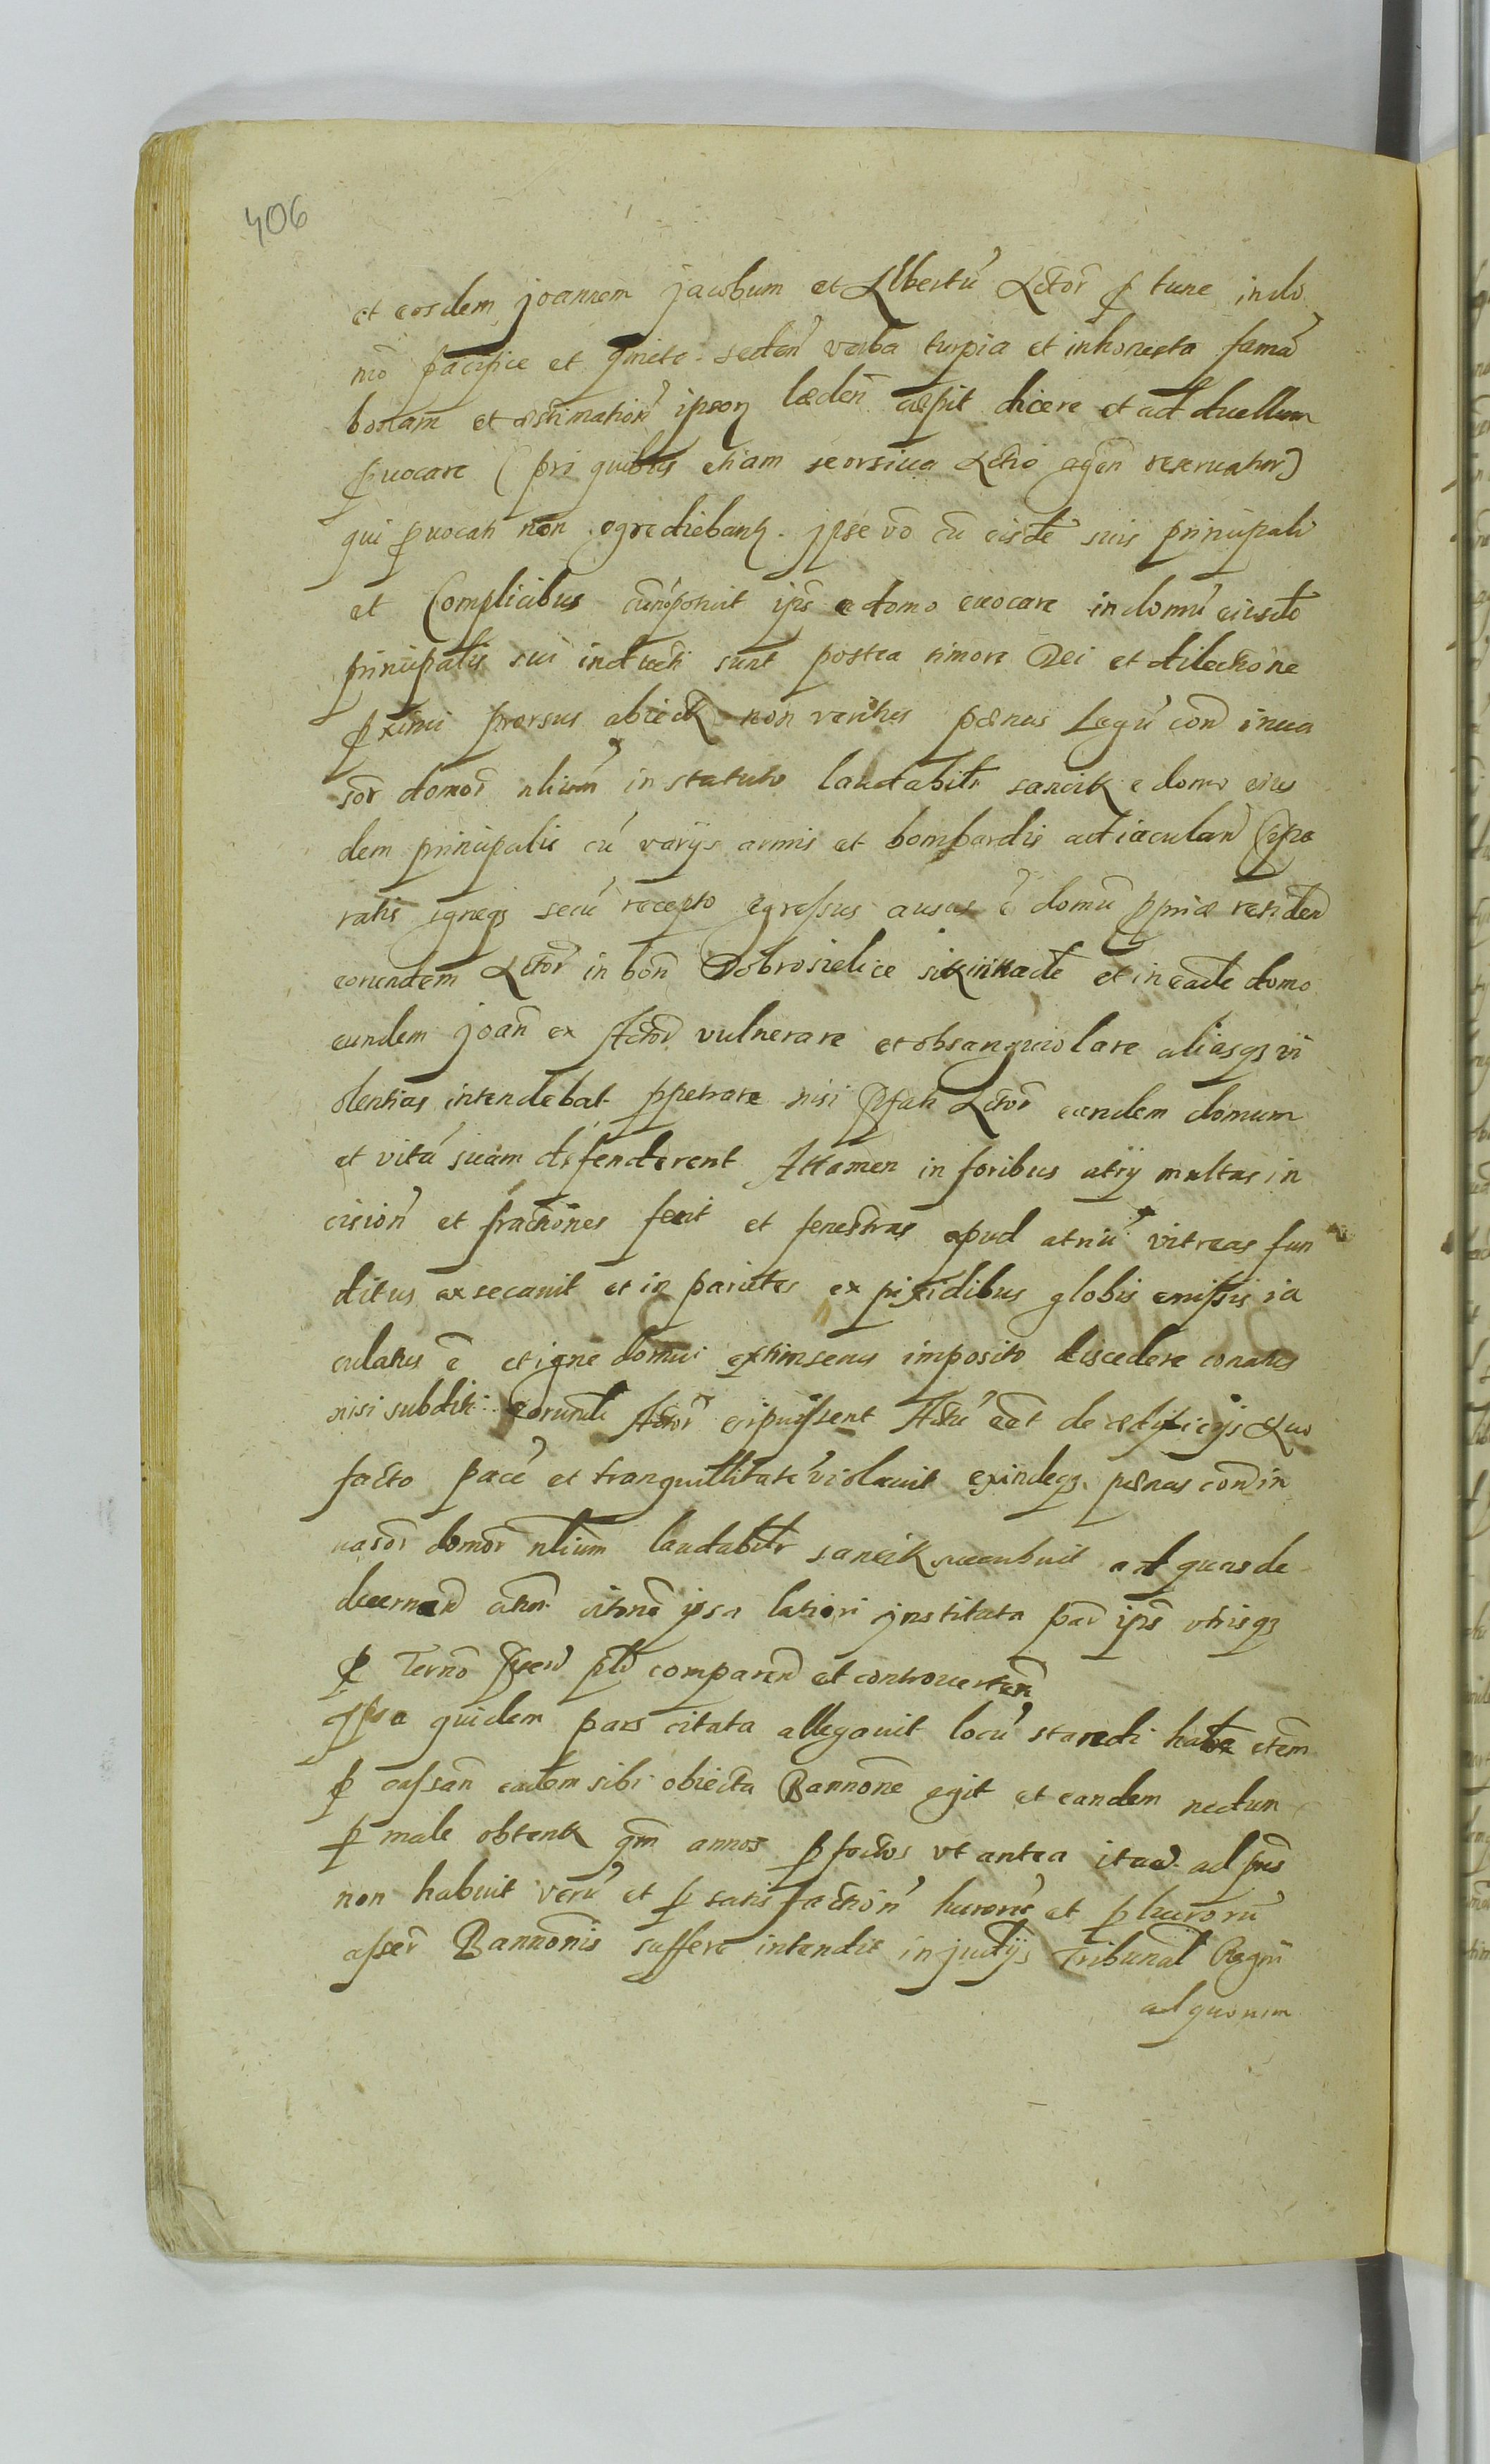 406
et eosdem Joannem Jacobum et Albertũ Actor̃ p tunc in do
mo pacifice et quiete seden̄ verba turpia et inhonesta famã
bonam et æstimation̄ ipsor læden̄ cæpit dicere et ad duellum
puocare (pri quibus etiam seorsiua Actio agen̄ reseruatur)
qui puocati non egrediebant. Jpse vō cũ eisdē suis principali
et Complicibus cum potuit ips e domo euocare in domũ eiusdē
principalis sui inducti sunt postea timore Dei et dilectione
pximi prorsus abiect non veritus pænas Legũ con̄ inua
sor̄ domor̄ nlium̄ in statuto laudabilr sancit e domo eius
dem principalis cũ varijs armis et bompardis ad iaculand ppa
ratis igneq3 secũ recepto egressus ausus ē domũ ppriæ residen̄
eorundem Actor̄ in bon̄ Dobrosielice sit in eadē et in eadē domo
eundem Joan̄ ex Actor̄ vulnerare et obsanguiolare aliasq3 vi
olentias intendebat ppetrare nisi pfati Actor̄ eandem domum
et vitã suam defenderent Attamen in foribus atrij multas in
cision̄ et fractiones fecit et fenestras apud atriũ vitreas fun
ditus exsecauit et in parietes ex pixidibus globis emissis ia
culatus ē et igne domui extrinsecus imposito discedere conatus
nisi subditi eorundē Actor̄ eripuissent Actũ eet de ædificijs Quo
facto pacẽ et tranquillitatẽ violauit exindeq3 pænas con̄ in
uasor̄ domor̄ nlium laudabilr sancit succubuit ad quas de
decernend citatione ipsa latiori instituta par̄ ips vtrisq3
p Ternō comparen̄ et controuerten̄
Ipsa quidem pars citata allegauit locũ standi habē etem
p cassan̄ eadem sibi obiecta Bannonē egit et eandem nedum
p male obtent qm annos p factos vt antea ita ad pns
non habuit verũ et p satisfaction̄ lucroris et p lucrorũ
asser̄ Bannonis suffere intendit in judijs Tribunal Regni
ad quonim